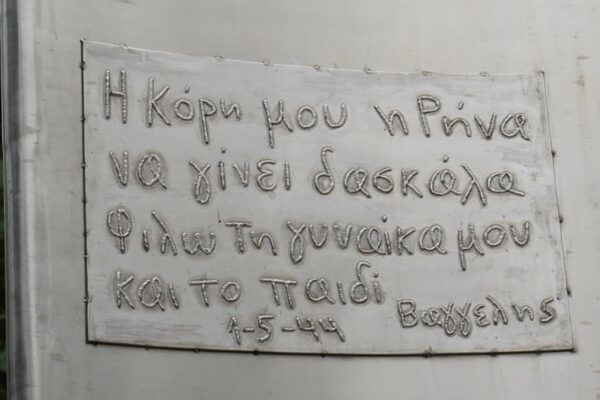 Η κόρη μου η Ρήνα
να γίνει δασκάλα
Φιλώ τη γυναίκα μου
και το παιδί
1-5-44 Βαγγέλης